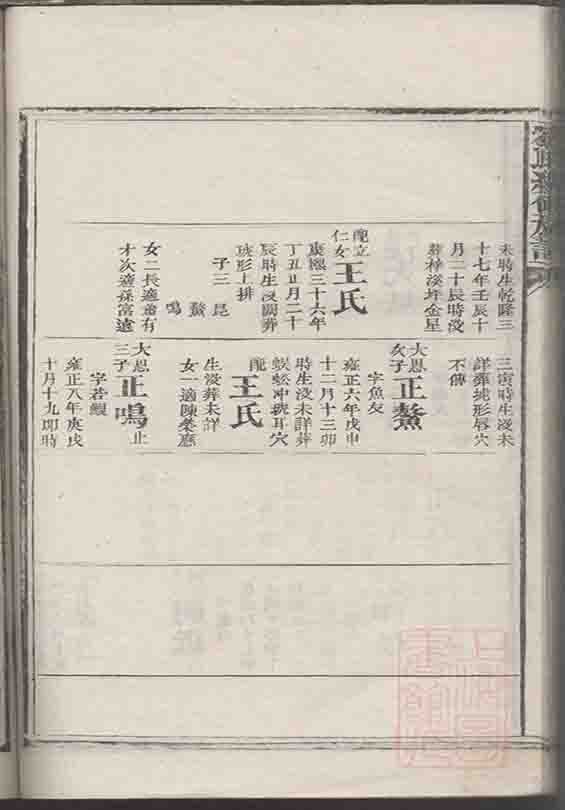 未時生乾隆三
十七年壬辰十
月二十辰時沒
葬梓溪坪金星
配立
仁女
王氏
康熙三十六年
丁丑正月二十
辰時生沒闕葬
琥形上排
子三
昆
鰲
鳴
女二長適蕭有
才次適孫富遠
三寅時生沒未
詳葬 形唇穴
不傳
大恩
次子
正鰲
字魚友
雍正六年戊申
十二月十三卯
時生沒未詳葬
蜈蚣冲 耳穴
配
王氏
生沒葬未詳
女一適陳榮應
大恩
三子
正鳴
止
字若鰻
雍正八年庚戌
十月十九卯時